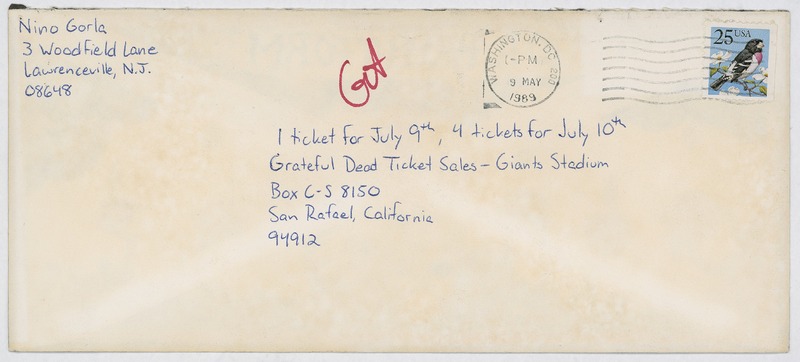 Nino Gorla
3 Woodfield Lane
Lawrenceville, N.J.
08648
Got
WASHINGTON, DC 200
PM
9 MAY
1989
25 USA
1 ticket for July 9th, 4 tickets for July 10th
Grateful Dead Ticket Sales - Giants Stadium
Box C-S 8150
San Rafael, California
94912